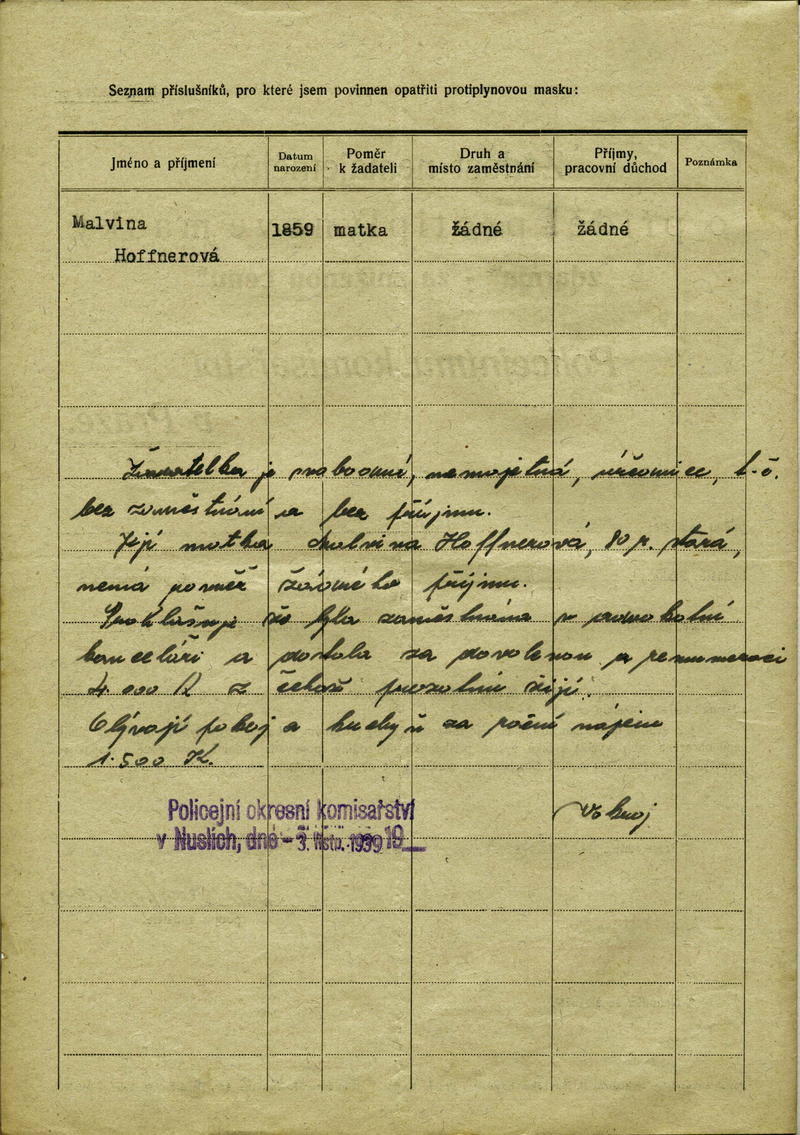 Seznam příslušníků, pro které jsem povinnen opatřiti protiplynovou masku:
Jméno a příjmení
Datum narození
Poměr k žadateli
Druh a místo zaměstnání
Příjmy, pracovní důchod
Poznámka
Malvina 1859 matka žádné žádné
Hoffnerová
Žadatelka je svobodná, nemajetná, úřednice, t.č.
bez zaměstnání a bez příjmu.
Její matka Malvina Hoffnerová, 80 r. stará,
nemá poměř žádného příjmu.
že byla zaměstnána v advokátní
kanceláři a dostala za dovolenou a remuneraci
4.000 K z čehož prozatím žijí.
Obývají pokoj a kuchyň za roční nájem
1.500 K.
Policejní okresní komisařství
v Nuslích, dne - 3. listp. 1939 19